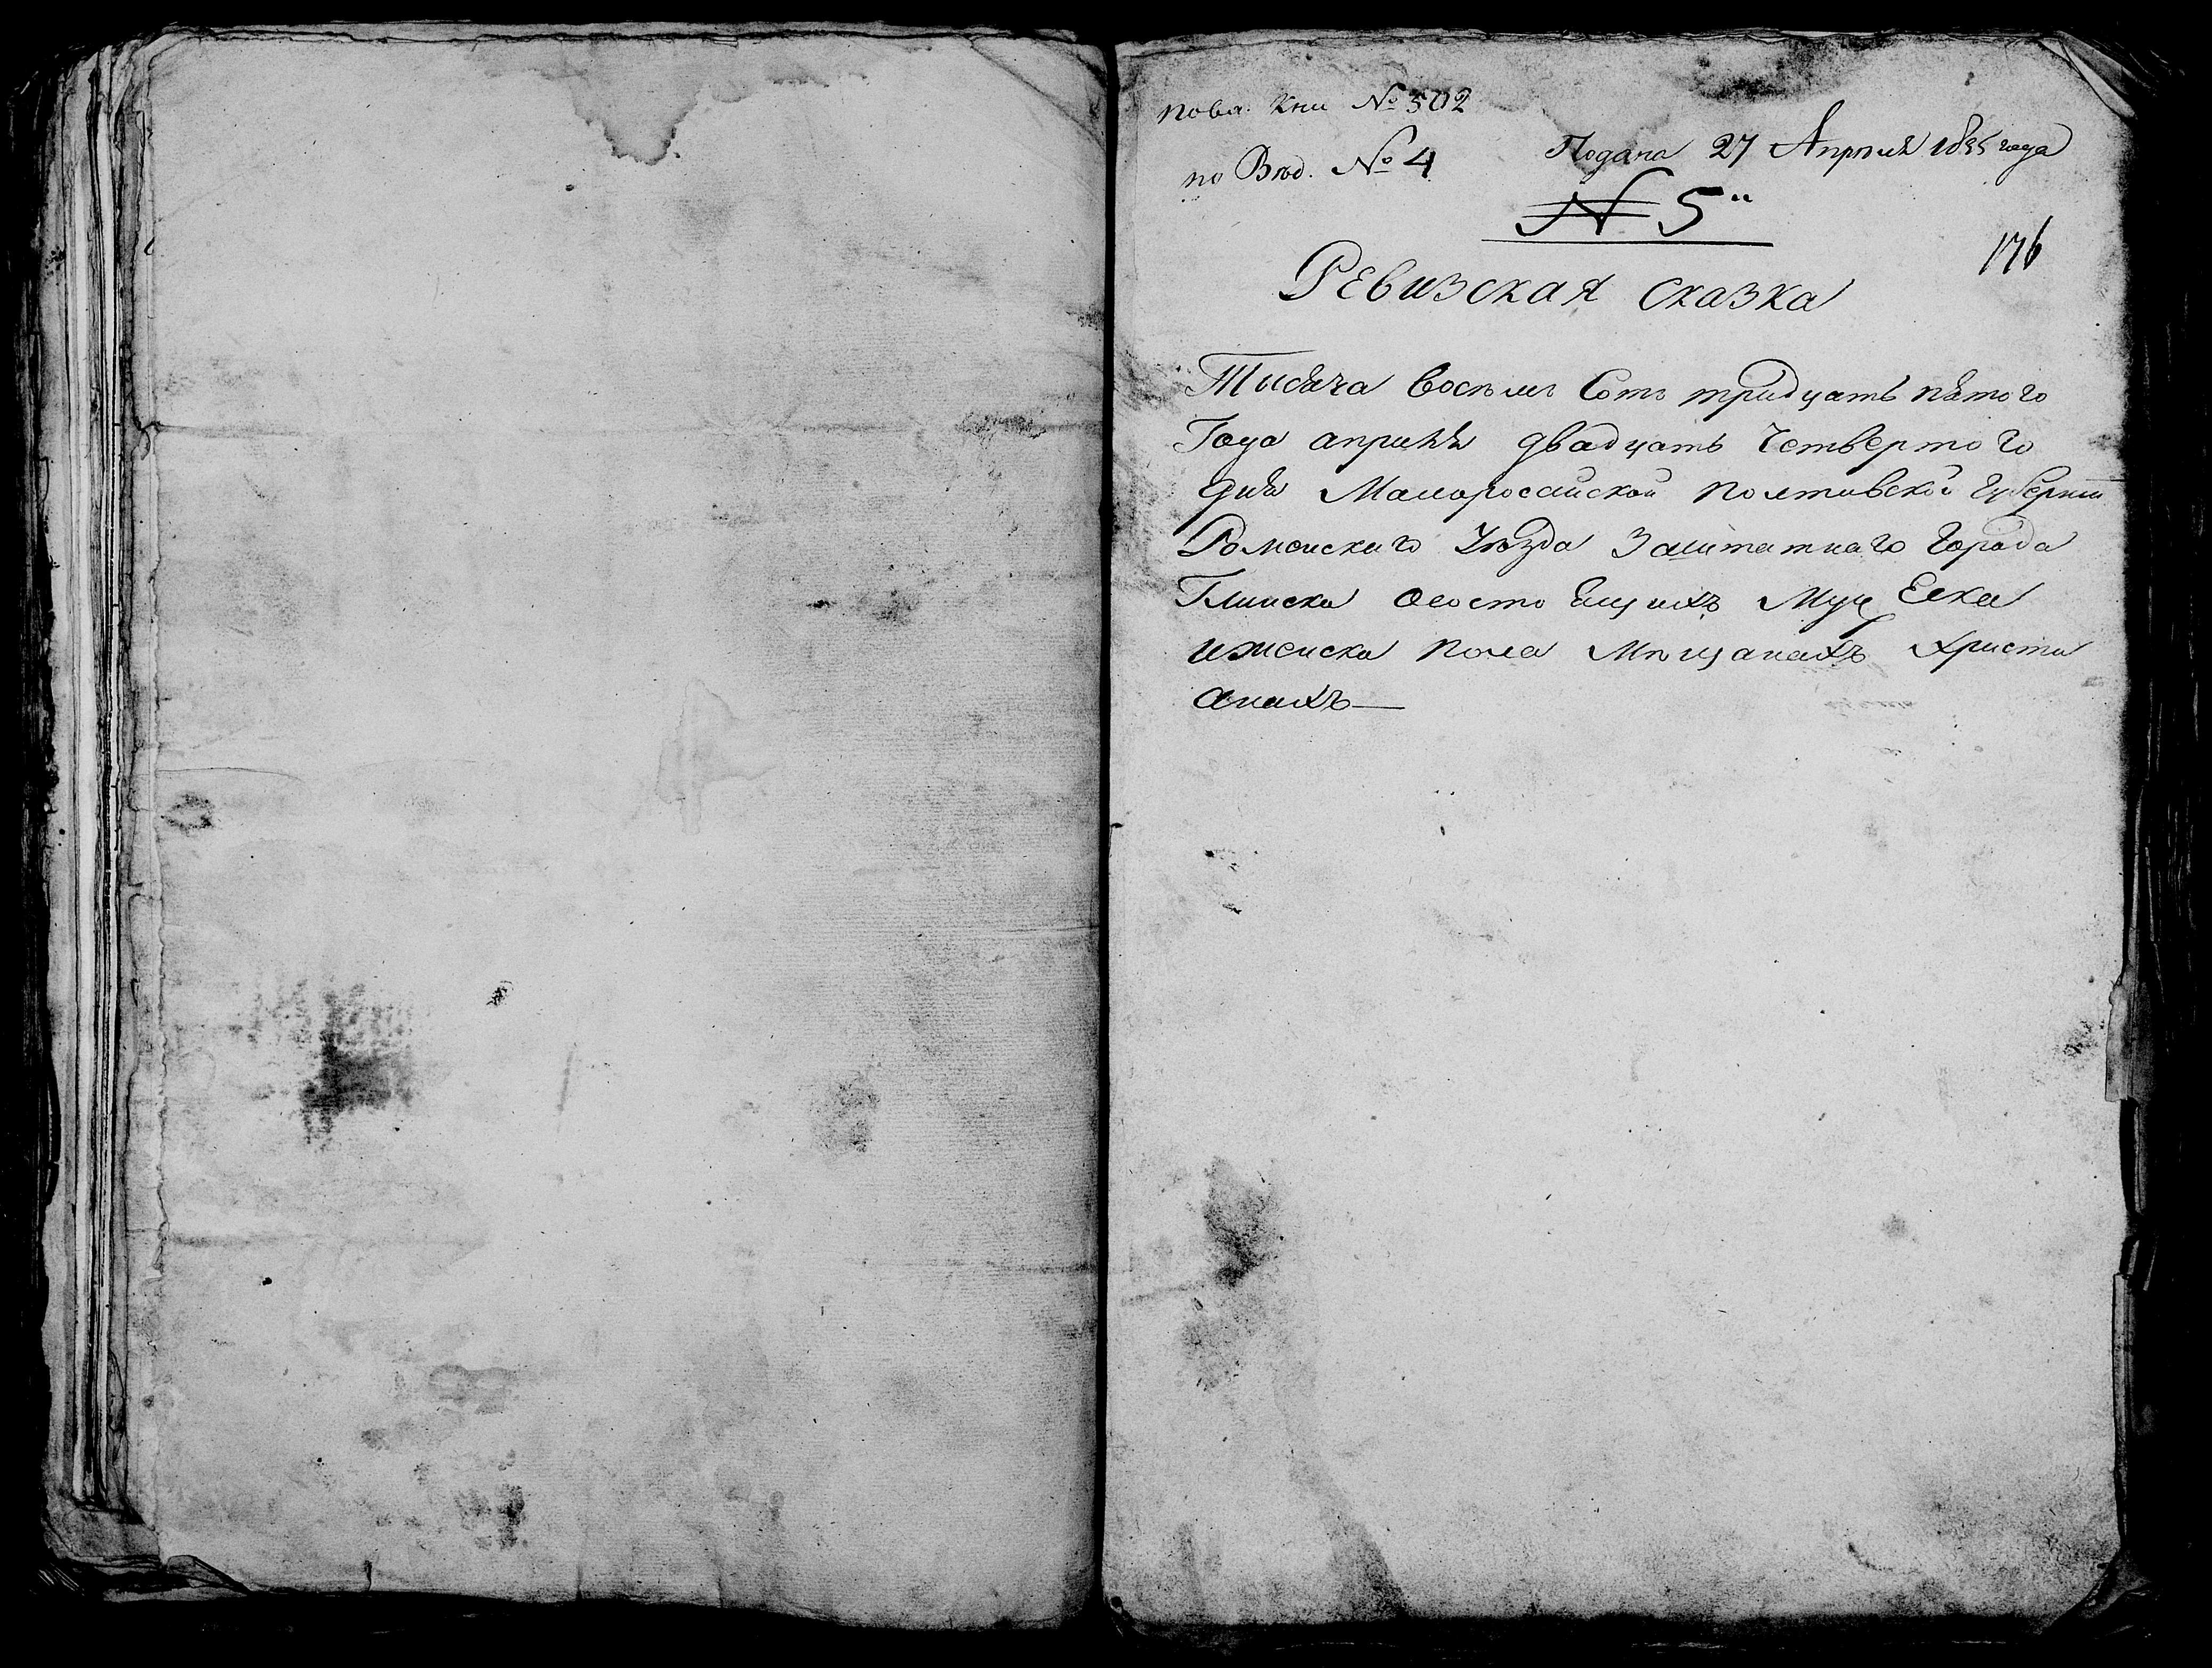 по Вѣд. № 4
Подана 27 Апрѣля 1835 года
№ 5"
176
Ревизская сказка
Тысяча восемь Сотъ тридцать пятого
Года апреля двадцать Четвертого
дня Малоросииской полтавской губернии
Роменского Уѣзда Заштатнаго Города
Глинска осостоящихъ Муżеска
иженска пола Мѣщанахъ Христи
анахъ—